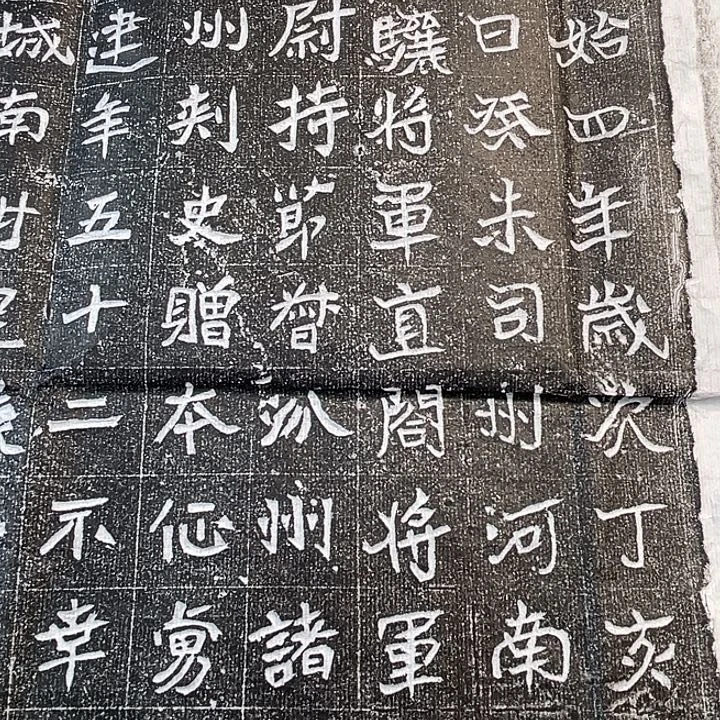 始四年歲次丁亥
日癸未司州河南
驤將軍直閤將軍
尉持節督州諸
州刾史贈本征虜
建年五十二不幸
城南